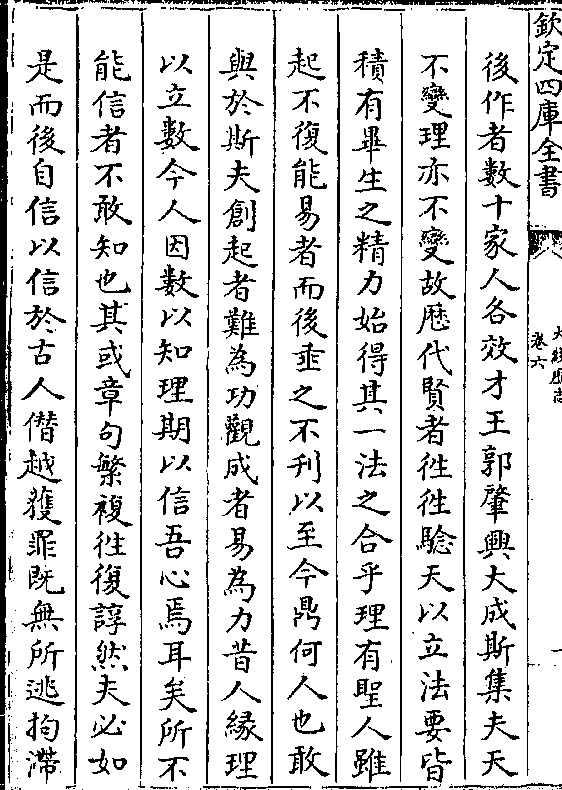 欽定四庫全書
大統厯志
卷六
後作者數十家人各效才王郭肇興大成斯集夫天
不變理亦不變故厯代賢者徃徃驗天以立法要皆
積有畢生之精力始得其一法之合乎理有聖人雖
起不復能易者而後垂之不刋以至今鼎何人也敢
與於斯夫創起者難為功觀成者易為力昔人緣理
以立數今人因數以知理期以信吾心焉耳矣所不
能信者不敢知也其或章句繁複徃復諄然夫必如
是而後自信以信於古人僭越獲罪既無所逃拘滯